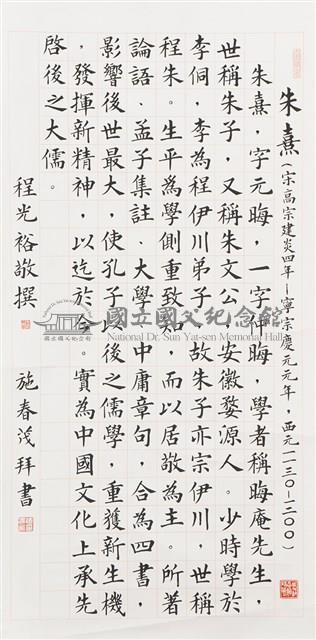 朱熹（宋高宗建炎四年－寧宗慶元元年，西元一一三〇－一二〇〇）
朱熹，字元晦，一字仲晦，學者稱晦庵先生，
世稱朱子，又稱朱文公。安徽婺源人。少時學於
李侗，李為程伊川弟子，故朱子亦宗伊川，世稱
程朱。生平為學側重致知，而以居敬為主。所著
論語、孟子集註、大學、中庸章句，合為四書，
影響後世最大，使孔子以後之儒學，重獲新生機
，發揮新精神，以迄於今。實為中國文化上承先
啓後之大儒。
程光裕敬撰
施春茂拜書
國立國父紀念館
National Dr. Sun Yat-sen Memorial Hall